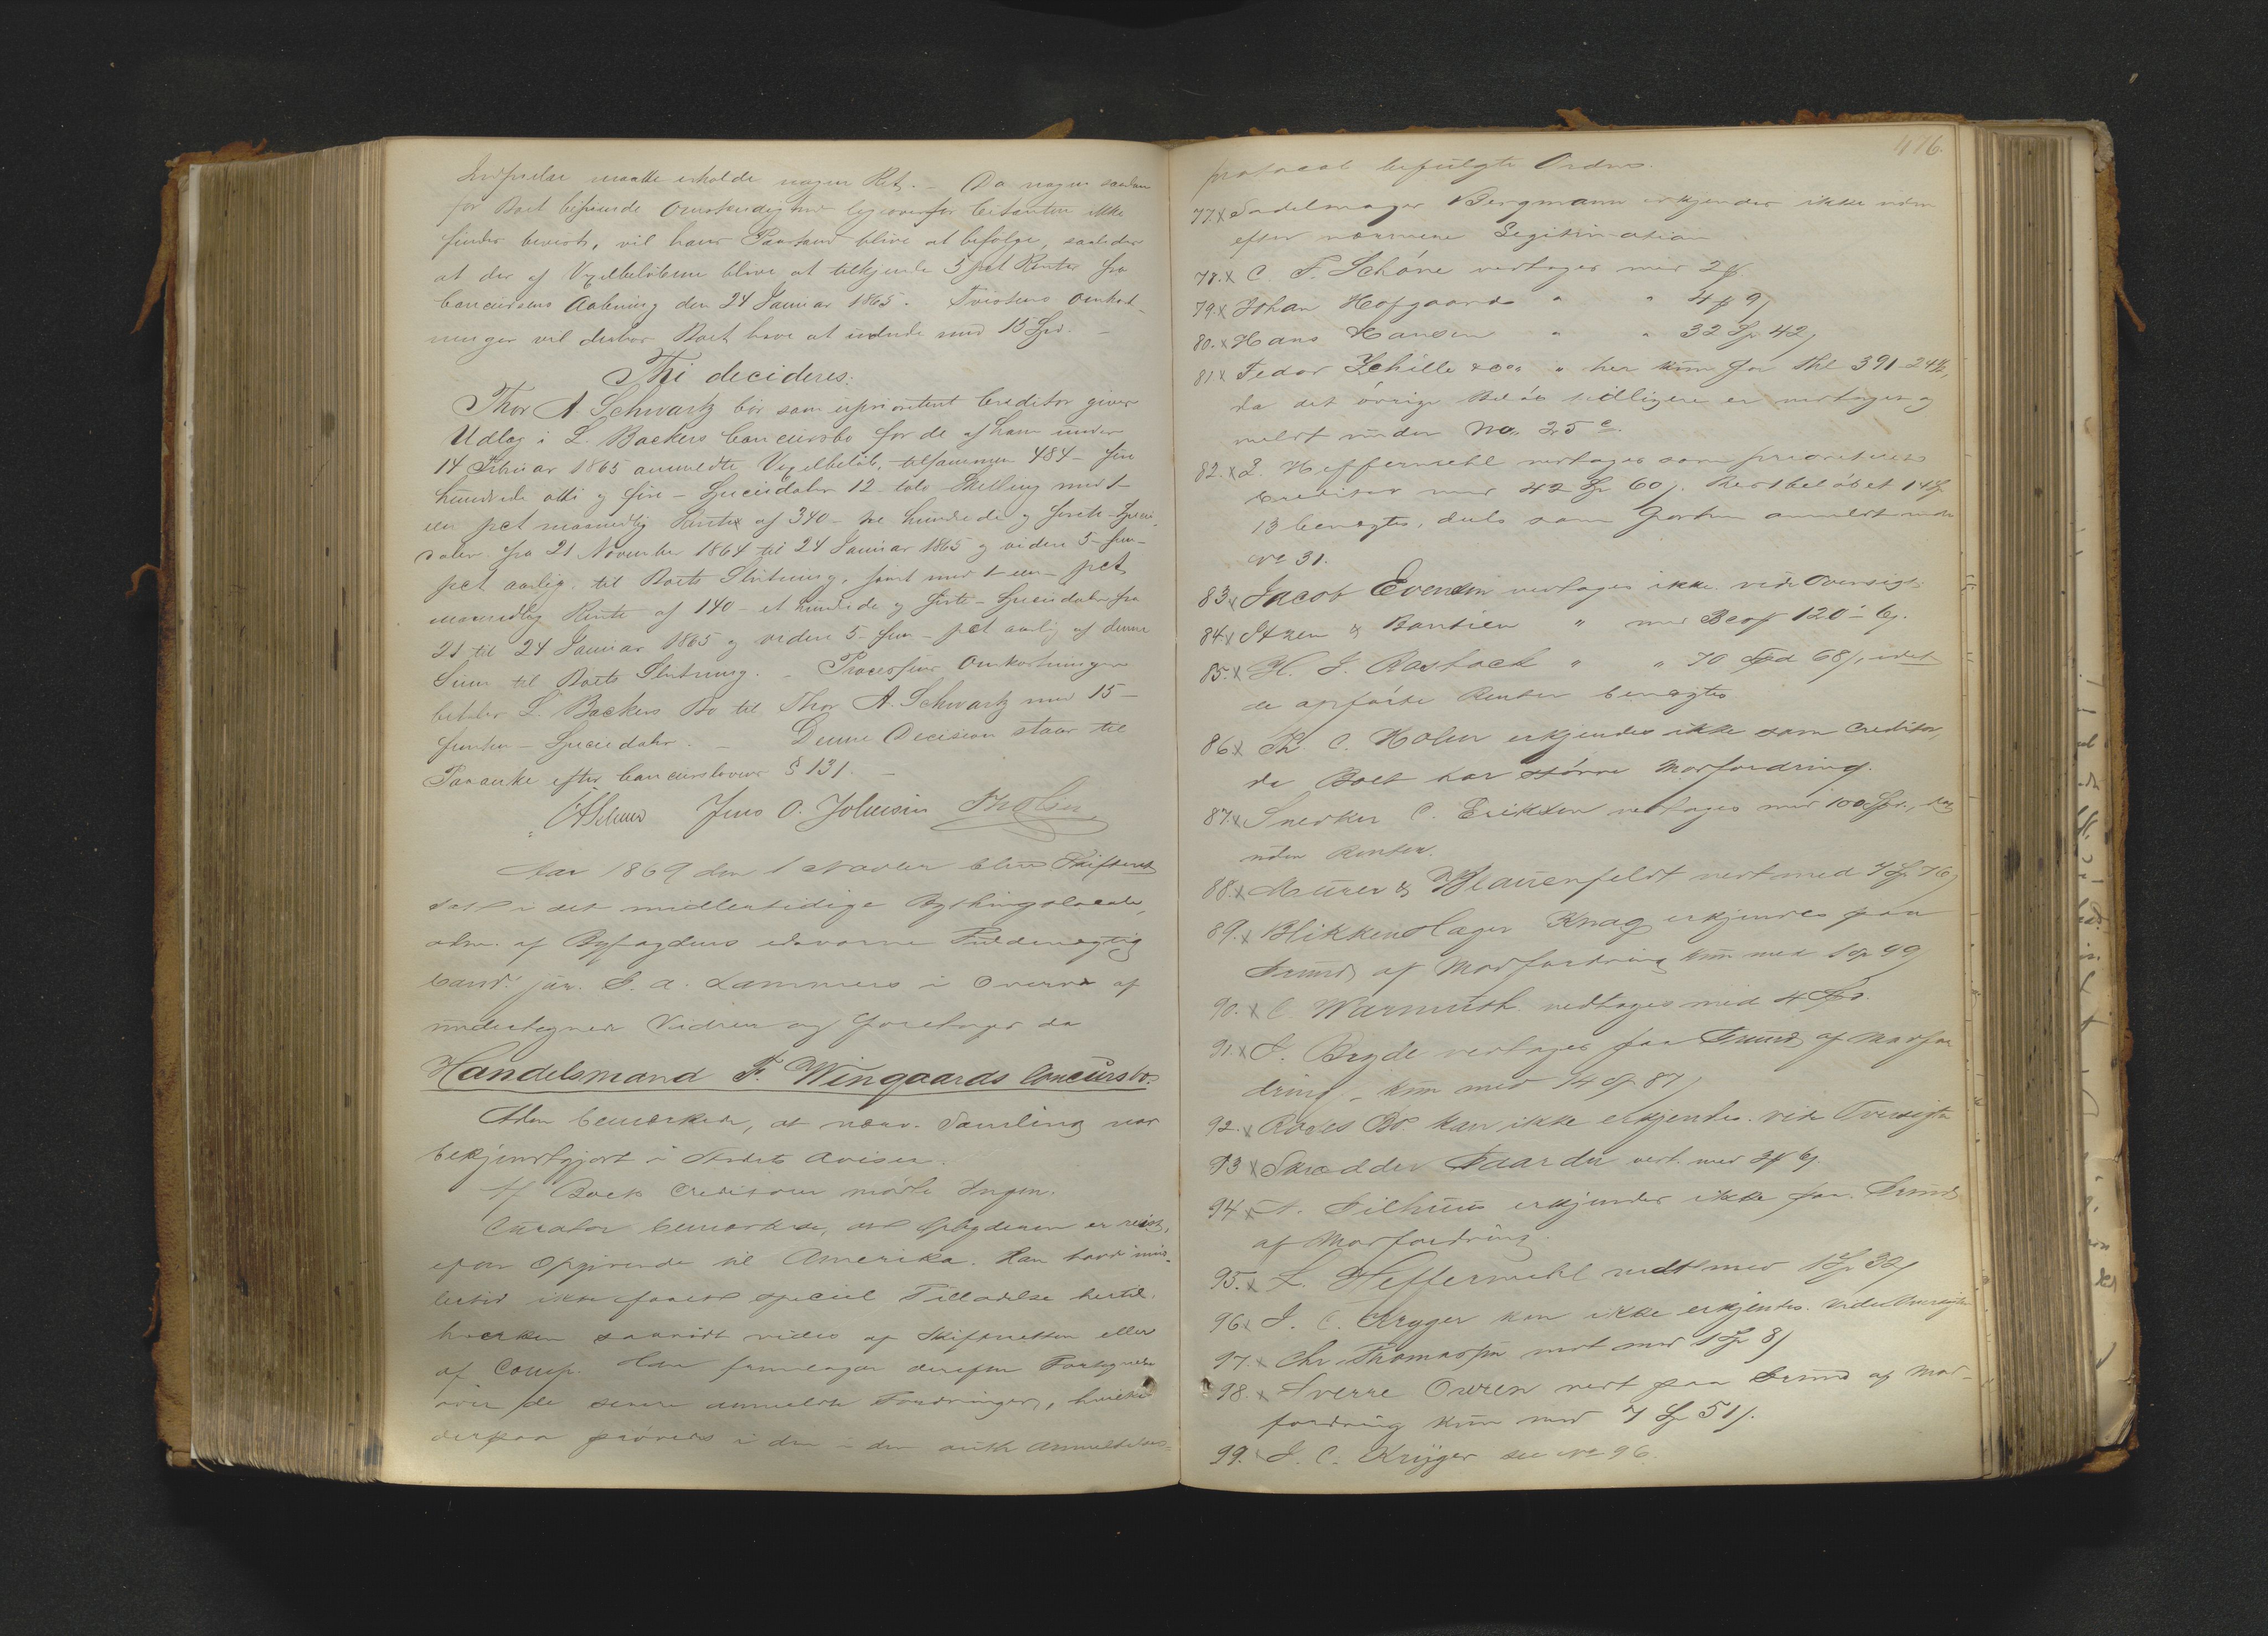 maatte erholde nogen Ret. — Da nogen saadan
for Boet Omstændighed ligeoverfor Citanten ikke
findes beviist, vil hans Paastand blive at befølge, saaledes
at der af Vexelbeløbene blive at tilkjende 5 pct Renter fra
Concursens Aabning den 24 Januar 1865. Tvistens Omkost-
ninger vil derhos Boet have at udrede med 15 Spd. —
Thi decideres:
Thor A Schwartz bør som uprioriteret Creditor gives
Udlæg i L. Backers Concursbo for de af ham under
14 Februar 1865 anmeldte Vexelbeløb, tilsammen 484 – fire
hundrede otti og fire – Speciedaler 12 – tolv Skilling med 1 –
een pct maanedlig Rente af 340 – tre hundrede og førti – Specie-
daler fra 21 November 1864 til 24 Januar 1865 og videre 5 – fem –
pct aarlig til Boets Slutning, samt med 1 – een – pct
maanedlig Rente af 140 – et hundrede og førti – Speciedaler fra
21 til 24 Januar 1865 og videre 5 – fem – pct aarlig af denne
Sum til Boets Slutning. – Processens Omkostninger
betaler L. Backers Bo til Thor A. Schwartz med 15 –
femten – Speciedaler. – Denne Decision staar til
Paaanke efter Concurslovens § 131. –
Jens O. Johnsen Th Olsen
Aar 1869 den 1 blev Skifteret
sat i det midlertidige Bythingslocale,
adm. af Byfogdens edsvorne Fuldmægtig
Cand. jur. G. A. Lammers i Overvær af
undertegnede Vidner og foretoges da
Handelsmand F. Wingaards Concursbo.
bemærkede, at nærv. Samling var
bekjendtgjort i Stedets Aviser.
Af Boets Creditorer mødte Ingen.
Curator bemærkede, at Opbyderen er reist,
efter Opgivende til Amerika. Han havde imid-
lertid ikke faaet speciel Tilladelse hertil,
hverken saavidt vides af Skifteretten eller
af Comp. Han fremlagde derefter Fortegnelse
over de senere anmeldte Fordringer, hvilke
derpaa prøvedes i den i den Anmeldelses-
476.
protocol befulgte Orden.
77. x Sadelmager Bergmann erkjendes ikke uden
efter nærmere Legitimation
78. x C. F. Schöne vedtages med 2
79. x Johan Hofgaards " " 4 9
80. x Hans Hansen " " 32 Sp 42
81 x Fedor Schille & Co " her kun for Thl 391-24
da det øvrige Beløb tidligere er vedtaget og
meldt under No. 25 c.
82. x L. Heffermehl vedtages som prioriteret
Creditor med 42 Sp 60. Restbeløbet 14
13 benægtes, dels som anmeldt under
No 31.
83. x Jacob Evensen vedtages ikke. vide Oversigt.
84 x Itzen & Bantien " med Bco 120 - 6.
85. x H. J. Rasbach " " 70 Spd 68, idet
de opførte Renter benægtes
86 x Th. C. Holm erkjendes ikke som Creditor,
da Boet har større Modfordring.
87. x Snedker C. Eriksen vedtages med 100 Spd.,
uden Renter.
88. x Meurer & Blauenfeldt vedt med 4 Sp 76
89. x Blikkenslager Knag erkjendes paa
Grund af Modfordring kun med 1 Sp 99
90. x C. Warmuth vedtages med 4 Spd.
91. x J. Bryde vedtages paa Grund af Modfor
dring kun med 14 Sp 87
92. x Bo kan ikke erkjendes. vide Oversigten
93 x Skrædder Gaarder vedt. med 3 6
94 x erkjendes ikke paa Grund
af Modfordring.
95. x L. Heffermehl vedt med 1 Sp 32
96 x J. C. Krüger kan ikke erkjendes. vide Oversigten
97. x Chr. Thomassen vedt med 1 Sp 8
98. x Sverre Owren vedt paa Grund af Mod-
fordring kun med 7 Sp 51.
99. J. C. Krüger see No 96.